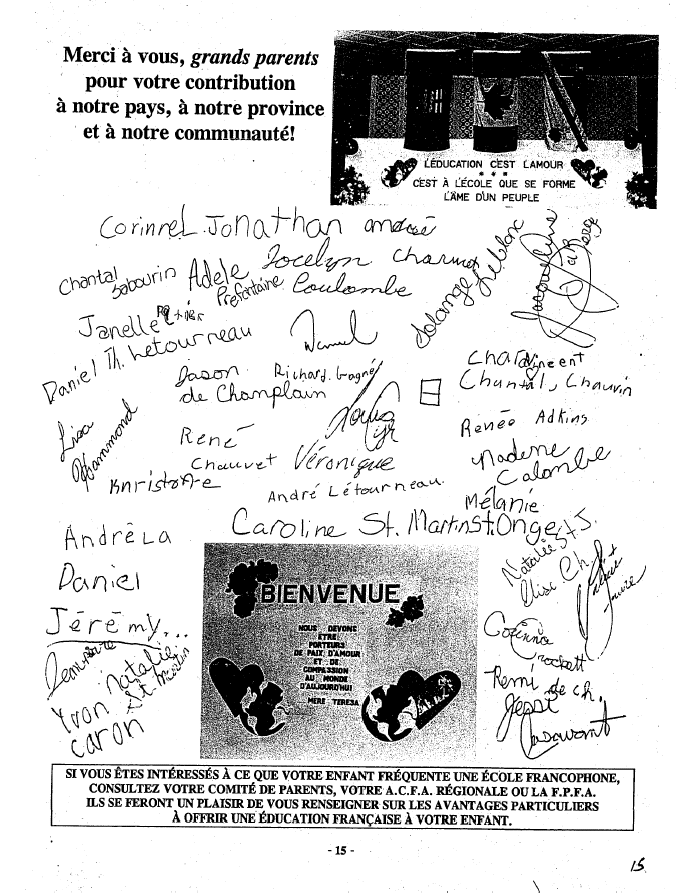 Merci à vous, grands parents
pour votre contribution
à notre pays, à notre province
et à notre communauté!
L'ÉDUCATION C'EST L'AMOUR
* * *
C'EST À L'ÉCOLE QUE SE FORME
L'ÂME D'UN PEUPLE
Corinne L. Jonathan André
Chantal Sabourin
Adele Préfontaine
Jocelyn Coulombe
Solange Leblanc
Jacqueline
Janelle
Daniel Th. Letourneau
Daniel
Jason
de Champlain
Richard Gagné
Vincent
Chantal Chauvin
Lisa Hammond
René
Chauvet
Véronique
Renée Adkins
Kristoffe
André Létourneau
Mélanie
St. Onge
Caroline St. Martin
Andréla
Daniel
Jérémy...
Natalie
St Martin
Yvon
Caron
Natalie St. J.
Elise Ch
Corinne
Crockett
Remi de Ch.
Jessi
Casavant
BIENVENUE
NOUS DEVONS
ÊTRE
PORTEURS
DE PAIX, D'AMOUR
ET DE
COMPASSION
AU MONDE
D'AUJOURD'HUI
MÈRE TERESA
SI VOUS ÊTES INTÉRESSÉS À CE QUE VOTRE ENFANT FRÉQUENTE UNE ÉCOLE FRANCOPHONE,
CONSULTEZ VOTRE COMITÉ DE PARENTS, VOTRE A.C.F.A. RÉGIONALE OU LA F.P.F.A.
ILS SE FERONT UN PLAISIR DE VOUS RENSEIGNER SUR LES AVANTAGES PARTICULIERS
À OFFRIR UNE ÉDUCATION FRANÇAISE À VOTRE ENFANT.
- 15 -
15